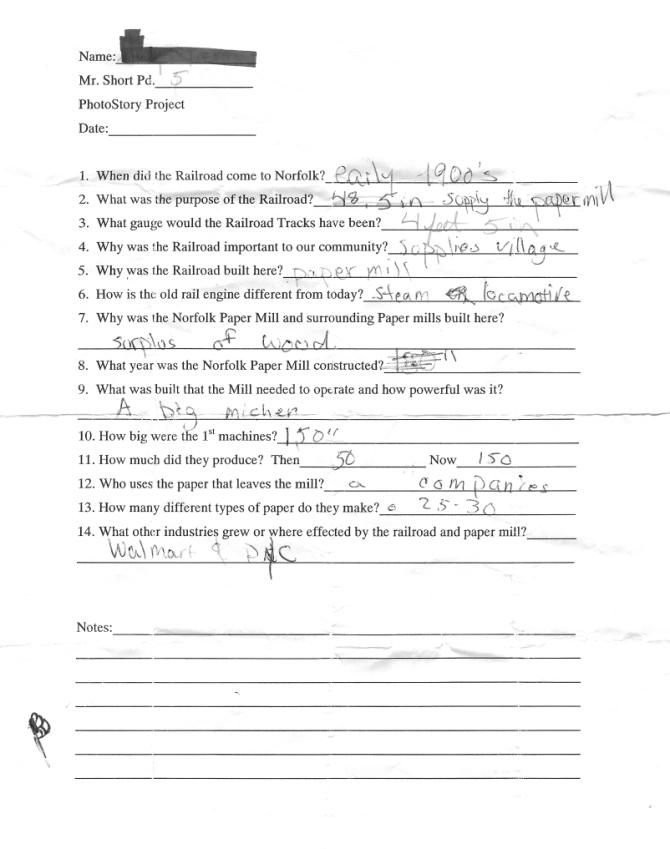 Name:
Mr. Short Pd. 5
PhotoStory Project
Date:
1. When did the Railroad come to Norfolk? early 1900's
2. What was the purpose of the Railroad? 48.5 in supply the paper mill
3. What gauge would the Railroad Tracks have been? 4 foot 5 in
4. Why was the Railroad important to our community? Supplies village
5. Why was the Railroad built here? paper mill
6. How is the old rail engine different from today? Steam locamotive
7. Why was the Norfolk Paper Mill and surrounding Paper mills built here?
surplus of woord
8. What year was the Norfolk Paper Mill constructed?
9. What was built that the Mill needed to operate and how powerful was it?
A big micher
10. How big were the 1st machines? 150"
11. How much did they produce? Then 50 Now 150
12. Who uses the paper that leaves the mill? a companies
13. How many different types of paper do they make? 25-30
14. What other industries grew or where effected by the railroad and paper mill?
Walmart &
Notes: